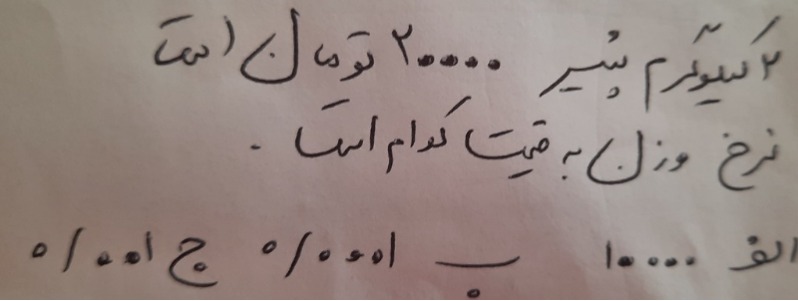 ۲ کیلوگرم پنیر ۲۰۰۰۰ تومان است
نرخ وزن به قیمت کدام است .
الف ۱۰۰۰۰ ب ۰/۰۰۰۱ ج ۰/۰۰۱